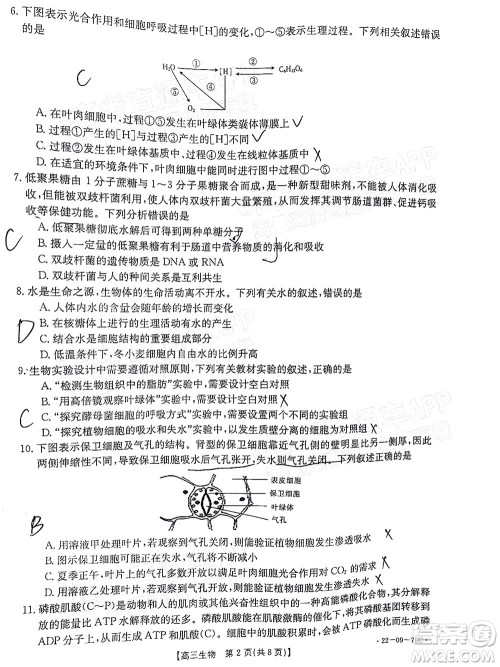 6. 下图表示光合作用和细胞呼吸过程中[H]的变化，①～⑤表示生理过程。下列相关叙述错误
的是
C
H₂O ① [H] ② ③ C₆H₁₂O₆
⑤ ④
O₂
A. 在叶肉细胞中，过程①⑤发生在叶绿体类囊体薄膜上
B. 过程①产生的[H]与过程③产生的[H]不同
C. 过程②发生在叶绿体基质中，过程③发生在线粒体基质中 X
D. 在适宜的环境条件下，叶肉细胞中能发生过程①～⑤
7. 低聚果糖由1分子蔗糖与1～3分子果糖聚合而成，是一种新型甜味剂，不能被人体消化吸
收，但能被双歧杆菌利用，使人体内双歧杆菌大量繁殖，有助于人体调节肠道菌群、促进钙吸
收等保健功能。下列分析错误的是
C
A. 低聚果糖彻底水解后可得到两种单糖分子
B. 摄入一定量的低聚果糖有利于肠道中营养物质的消化和吸收
C. 双歧杆菌的遗传物质是DNA或RNA
D. 双歧杆菌与人的种间关系是互利共生
8. 水是生命之源，生物体的生命活动离不开水。下列有关水的叙述，错误的是
A. 人体内水的含量会随年龄的增长而变化
D
B. 在核糖体上发生的生理活动有水的产生
C. 结合水是细胞结构的重要组成部分
D. 低温条件下，冬小麦细胞内自由水的比例升高
9. 生物实验设计中需要遵循对照原则，下列有关教材实验的叙述，正确的是
A. “检测生物组织中的脂肪”实验中，需要设计空白对照
B. “用高倍镜观察叶绿体”实验中，需要设计空白对照
C
C. “探究酵母菌细胞的呼吸方式”实验中，需要设计相互对照
D. “探究植物细胞的吸水和失水”实验中，需要设计空白对照 X
10. 下图表示保卫细胞及气孔的结构。肾型的保卫细胞靠近气孔侧的细胞壁伸缩性较小，因此
两侧伸缩性不同，导致保卫细胞吸水后气孔张开，失水则气孔关闭。下列叙述正确的是
表皮细胞
保卫细胞
叶绿体
气孔
B
A. 用溶液甲处理叶片，若观察到气孔关闭，则能验证植物细胞发生渗透吸水 X
B. 图示保卫细胞中的叶绿体能进行光合作用
C. 夏季正午，叶片上的一部分气孔会关闭，以减少细胞对CO₂的需求 X
D. 用溶液乙处理叶片，若观察到气孔张开，则能验证植物细胞发生渗透失水 X
11. 磷酸肌酸(C～P)是一种高能磷酸化合物，它能在肌酸激酶的催化下，将自身的
磷酸基团转移到ADP分子中合成ATP。
【高三生物 第2页(共8页)】